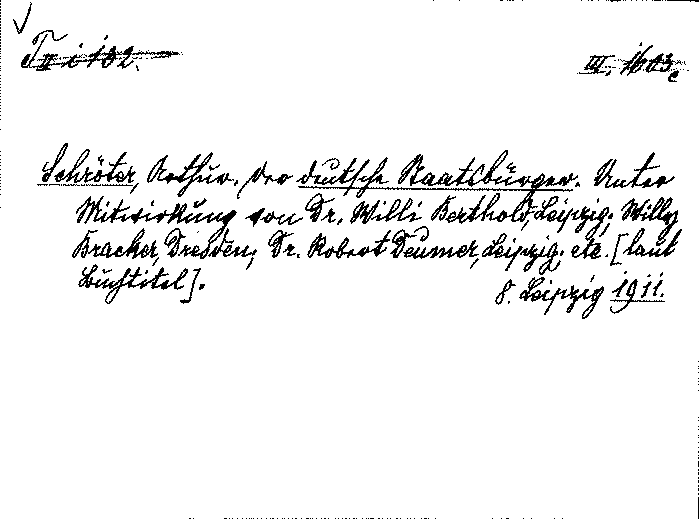 Tr i 102. III, 1603c
Schröter, Arthur. Der deutsche Staatsbürger. Unter
Mitwirkung von Dr. Willi Berthold, Leipzig; Willy
Bracher, Dresden; Dr. Robert Deumer, Leipzig; etc. [laut
Buchtitel].
8. Leipzig 1911.